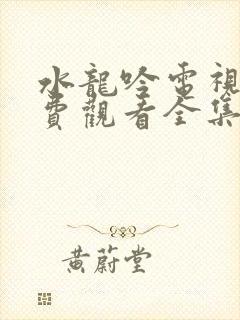 水龍吟電視
費觀看全集
黄蔚堂